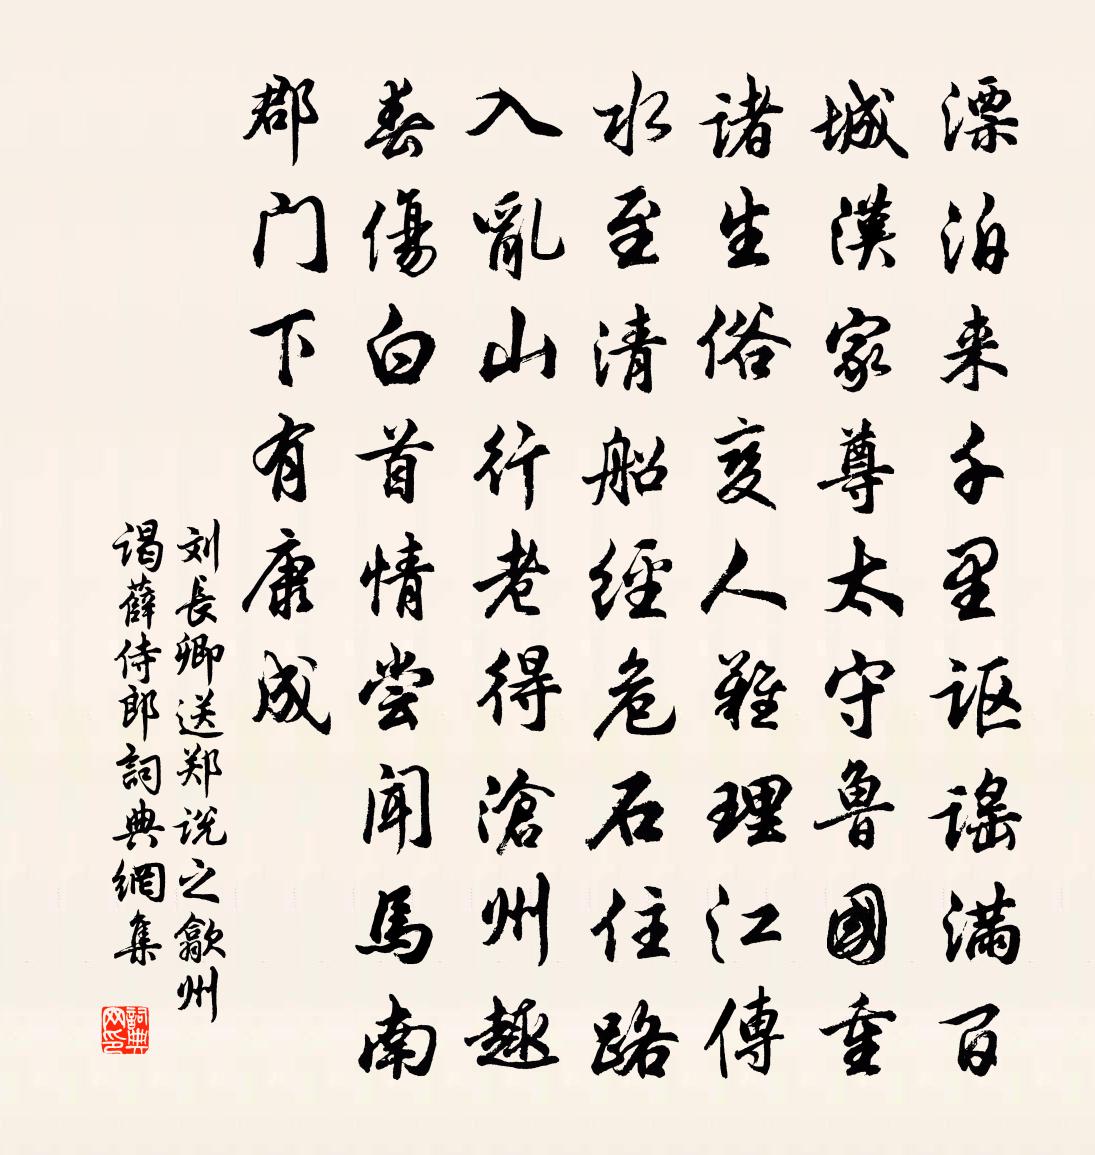 漂泊来千里讴謡满百
城漢家尊太守魯國重
諸生俗变人難理江傳
水至清船經危石住路
入亂山行老得滄州趣
春傷白首情尝闻馬南
郡门下有康成
刘長卿送郑说之歙州
谒薛侍郎詞典網集
詞典网印